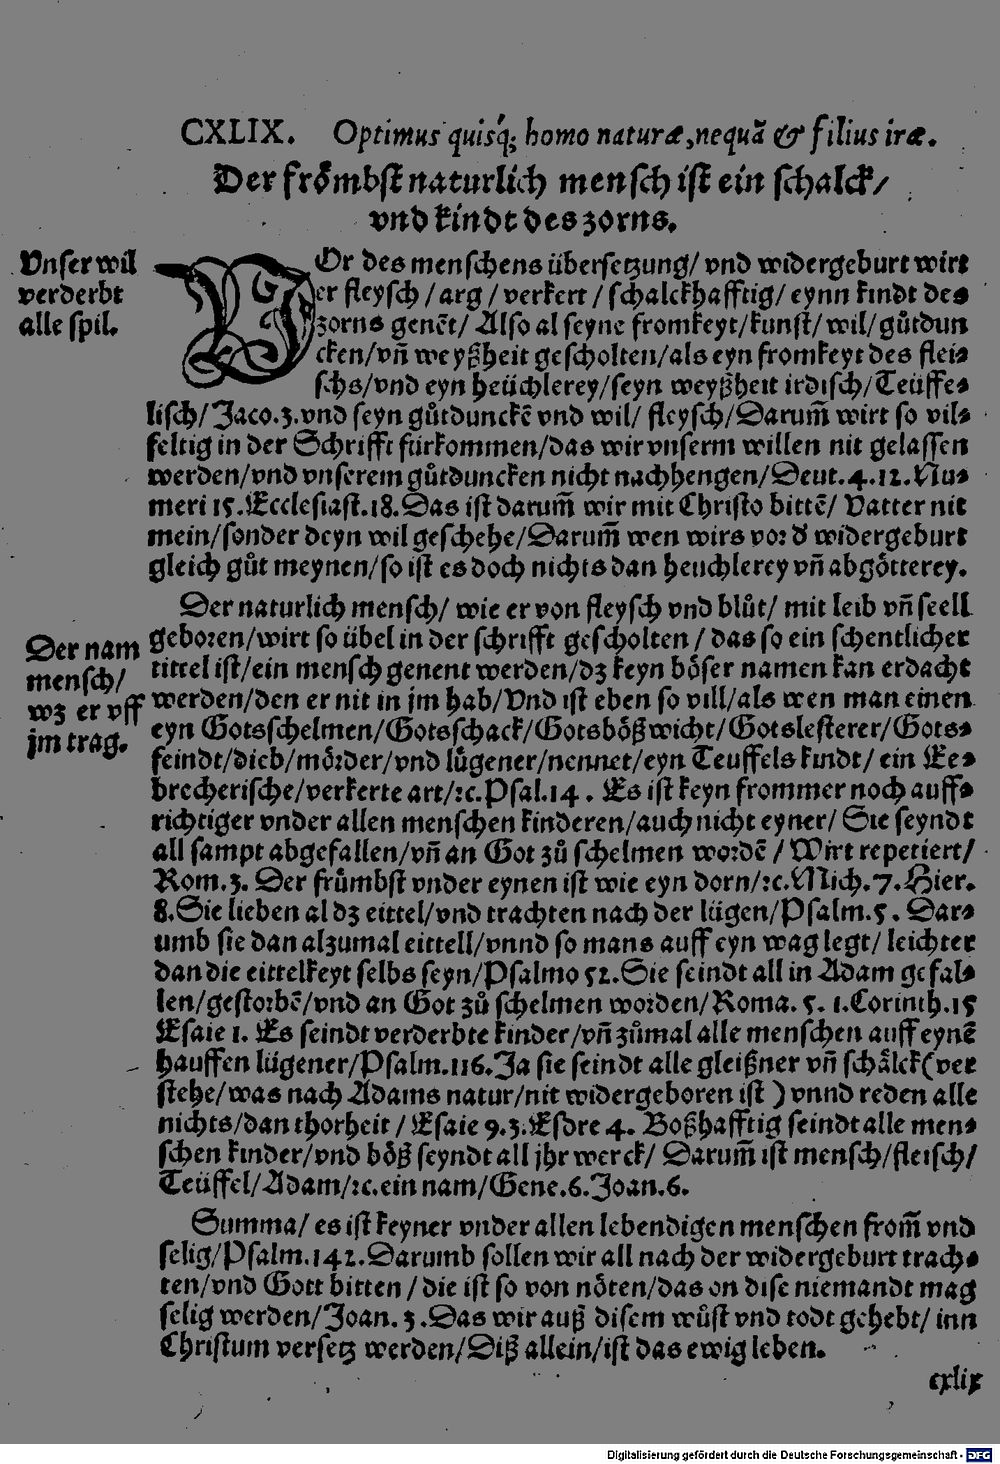 CXLIX. Optimus quisq́; homo naturæ, nequā & filius iræ.
Der frömbst naturlich mensch ist ein schalck/
vnd kindt des zorns.
Vnser wil
verderbt
alle spil.
VOr des menschens übersetzung/ vnd widergeburt wirt
er fleysch / arg / verkert / schalckhafftig / eynn kindt des
zorns genēt/ Also al seyne fromkeyt/kunst/ wil/gůtdun
cken/vñ weyßheit gescholten/als eyn fromkeyt des flei⸗
schs/vnd eyn heüchlerey/seyn weyßheit irdisch/Teüffe⸗
lisch/Jaco.3.vnd seyn gůtdunckē vnd wil/ fleysch/Darum̃ wirt so vil⸗
feltig in der Schrifft fürkommen/das wir vnserm willen nit gelassen
werden/vnd vnserem gůtduncken nicht nachhengen/Deut.4.12.Nu⸗
meri 15.Ecclesiast.18.Das ist darum̃ wir mit Christo bittē/ Vatter nit
mein/sonder deyn wil geschehe/Darum̃ wen wirs vor d̕ widergeburt
gleich gůt meynen/so ist es doch nichts dan heuchlerey vñ abgötterey.
Der naturlich mensch/ wie er von fleysch vnd blůt/ mit leib vñ seell
geboren/wirt so übel in der schrifft gescholten / das so ein schentlicher
tittel ist/ein mensch genent werden/dz keyn böser namen kan erdacht
werden/den er nit in jm hab/Vnd ist eben so vill/als wen man einen
eyn Gotsschelmen/Gotsschack/Gotsbößwicht/Gotslesterer/Gots⸗
feindt/dieb/mörder/vnd lügener/nennet/eyn Teuffels kindt/ ein Ee⸗
brecherische/verkerte art/ꝛc.Psal.14. Es ist keyn frommer noch auff⸗
richtiger vnder allen menschen kinderen/auch nicht eyner/ Sie seyndt
all sampt abgefallen/vñ an Got zů schelmen wordē / Wirt repetiert/
Rom.3. Der frümbst vnder eynen ist wie eyn dorn/ꝛc.Mich.7.Hier.
8.Sie lieben al dz eittel/vnd trachten nach der lügen/Psalm.5. Dar⸗
umb sie dan alzumal eittell/vnnd so mans auff eyn wag legt/ leichter
dan die eittelkeyt selbs seyn/Psalmo 52.Sie seindt all in Adam gefal⸗
len/gestorbē/vnd an Got zů schelmen worden/Roma. 5. 1.Corinth.15
Esaie 1. Es seindt verderbte kinder/vñ zůmal alle menschen auff eynē
hauffen lügener/Psalm.116.Ja sie seindt alle gleißner vñ schälck(ver
stehe/was nach Adams natur/nit widergeboren ist ) vnnd reden alle
nichts/dan thorheit / Esaie 9.3.Esdre 4. Boßhafftig seindt alle men⸗
schen kinder/vnd böß seyndt all jhr werck/ Darum̃ ist mensch/fleisch/
Teüffel/Adam/ꝛc.ein nam/Gene.6.Joan.6.
Der nam
mensch/
wz er vff
jm trag.
Summa/ es ist keyner vnder allen lebendigen menschen from̃ vnd
selig/Psalm.142.Darumb sollen wir all nach der widergeburt trach⸗
ten/vnd Gott bitten / die ist so von nöten/das on dise niemandt mag
selig werden/Joan. 3.Das wir auß disem wůst vnd todt gehebt/ inn
Christum versetz werden/Diß allein/ist das ewig leben.
cxlix
Digitalisierung gefördert durch die Deutsche Forschungsgemeinschaft - DFG